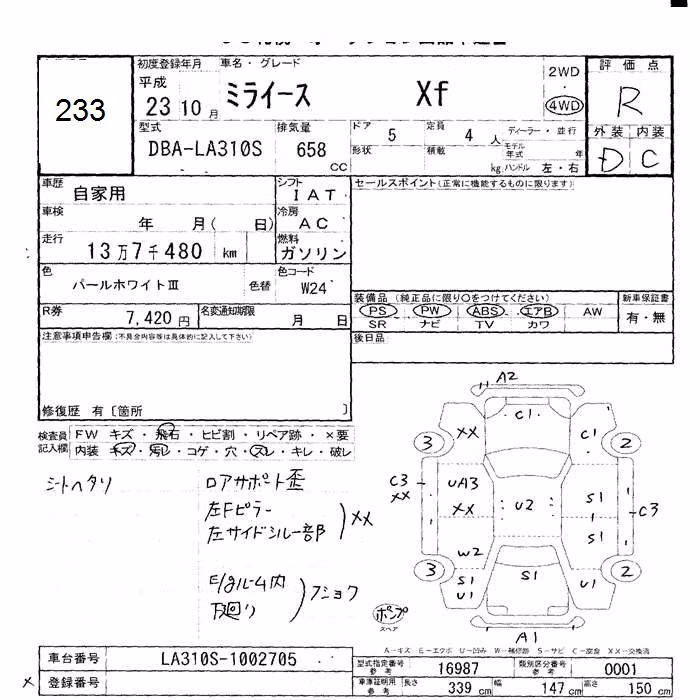 233
初度登録年月 車名・グレード
平成 23 10 月 ミライース Xf 2WD 4WD
評価点
R
外装 内装
D C
型式 排気量 ドア 5 定員 4 人 ディーラー・並行
DBA-LA310S 658 CC 形状 積載 kg モデル年式 年
ハンドル 左・右
車歴 自家用 シフト IAT セールスポイント(正常に機能するものに限ります)
車検 年 月( 日) 冷房 AC
走行 13万7千480 km 燃料 ガソリン
色 パールホワイトⅢ 色替 色コード W24
R券 7,420円 名変通知期限 月 日
装備品(純正品に限り○をつけてください) 新車保証書
PS PW ABS エアB AW 有・無
SR ナビ TV カワ
注意事項申告欄(不具合内容等は具体的に記入して下さい) 後日品
修復歴 有〔箇所 〕
検査員記入欄 FW キズ・飛石・ヒビ割・リペア跡・×要
内装 キズ・汚レ・コゲ・穴・スレ・キレ・破レ
シートヘタリ ロアサポート歪
左Fピラー
左サイドシル一部 XX
E/gルーム内
下廻り フショク
A2
C1
3 XX C1 2
C3 XX UA3 XX U2 S1 S1 C3
W2
3 S1 U1 S1 U1 2
ポンプ
スペア
A1
A-キズ E-エクボ U-凹み W-補修跡 S-サビ C-腐食 XX-交換済
車台番号 LA310S-1002705
登録番号 X
型式指定番号 参考 16987 類別区分番号 参考 0001
車庫証明用 参考 長さ 339 cm 幅 147 cm 高さ 150 cm